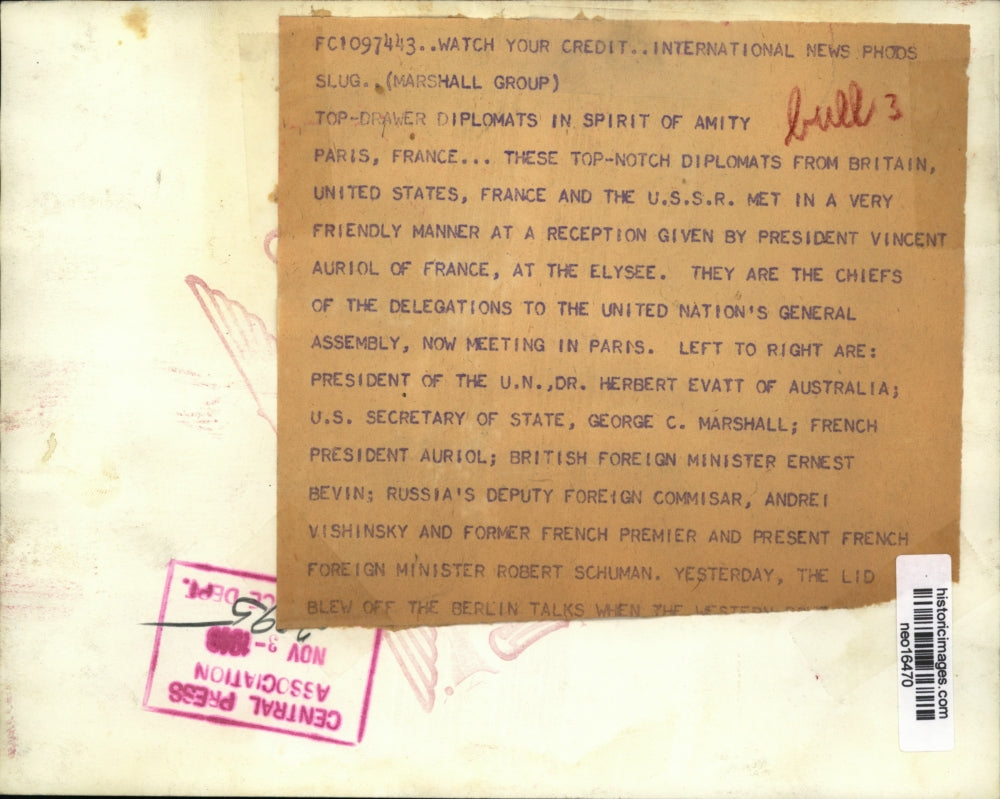 FC1097443..WATCH YOUR CREDIT..INTERNATIONAL NEWS PHOOS
SLUG..(MARSHALL GROUP)
TOP-DRAWER DIPLOMATS IN SPIRIT OF AMITY
bull 3
PARIS, FRANCE... THESE TOP-NOTCH DIPLOMATS FROM BRITAIN,
UNITED STATES, FRANCE AND THE U.S.S.R. MET IN A VERY
FRIENDLY MANNER AT A RECEPTION GIVEN BY PRESIDENT VINCENT
AURIOL OF FRANCE, AT THE ELYSEE. THEY ARE THE CHIEFS
OF THE DELEGATIONS TO THE UNITED NATION'S GENERAL
ASSEMBLY, NOW MEETING IN PARIS. LEFT TO RIGHT ARE:
PRESIDENT OF THE U.N.,DR. HERBERT EVATT OF AUSTRALIA;
U.S. SECRETARY OF STATE, GEORGE C. MARSHALL; FRENCH
PRESIDENT AURIOL; BRITISH FOREIGN MINISTER ERNEST
BEVIN; RUSSIA'S DEPUTY FOREIGN COMMISAR, ANDREI
VISHINSKY AND FORMER FRENCH PREMIER AND PRESENT FRENCH
FOREIGN MINISTER ROBERT SCHUMAN. YESTERDAY, THE LID
BLEW OFF THE BERLIN TALKS WHEN THE WESTERN
CENTRAL PRESS
ASSOCIATION
NOV 3-
DEPT.
historicimages.com
neo16470